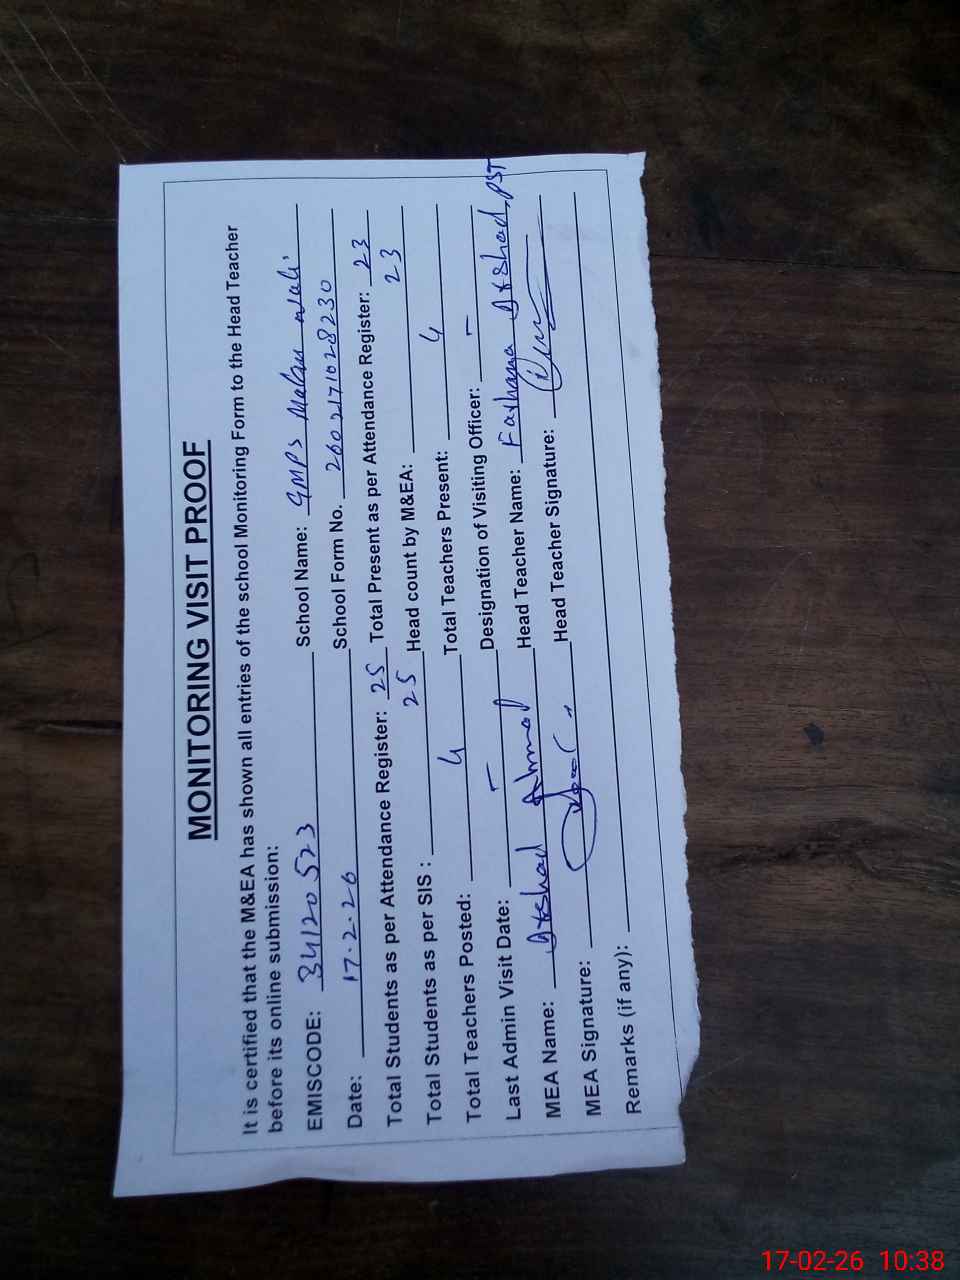 MONITORING VISIT PROOF
It is certified that the M&EA has shown all entries of the school Monitoring Form to the Head Teacher
before its online submission:
EMISCODE: 34120523 School Name: GMPS Malan wali
Date: 17.2.26 School Form No. 2602171028230
Total Students as per Attendance Register: 25 Total Present as per Attendance Register: 23
Total Students as per SIS : 25 Head count by M&EA: 23
Total Teachers Posted: 4 Total Teachers Present: 4
Last Admin Visit Date: - Designation of Visiting Officer: -
MEA Name: Arshad Ahmad Head Teacher Name: Farhana Arshad, PST
MEA Signature: Head Teacher Signature:
Remarks (if any):
17-02-26 10:38